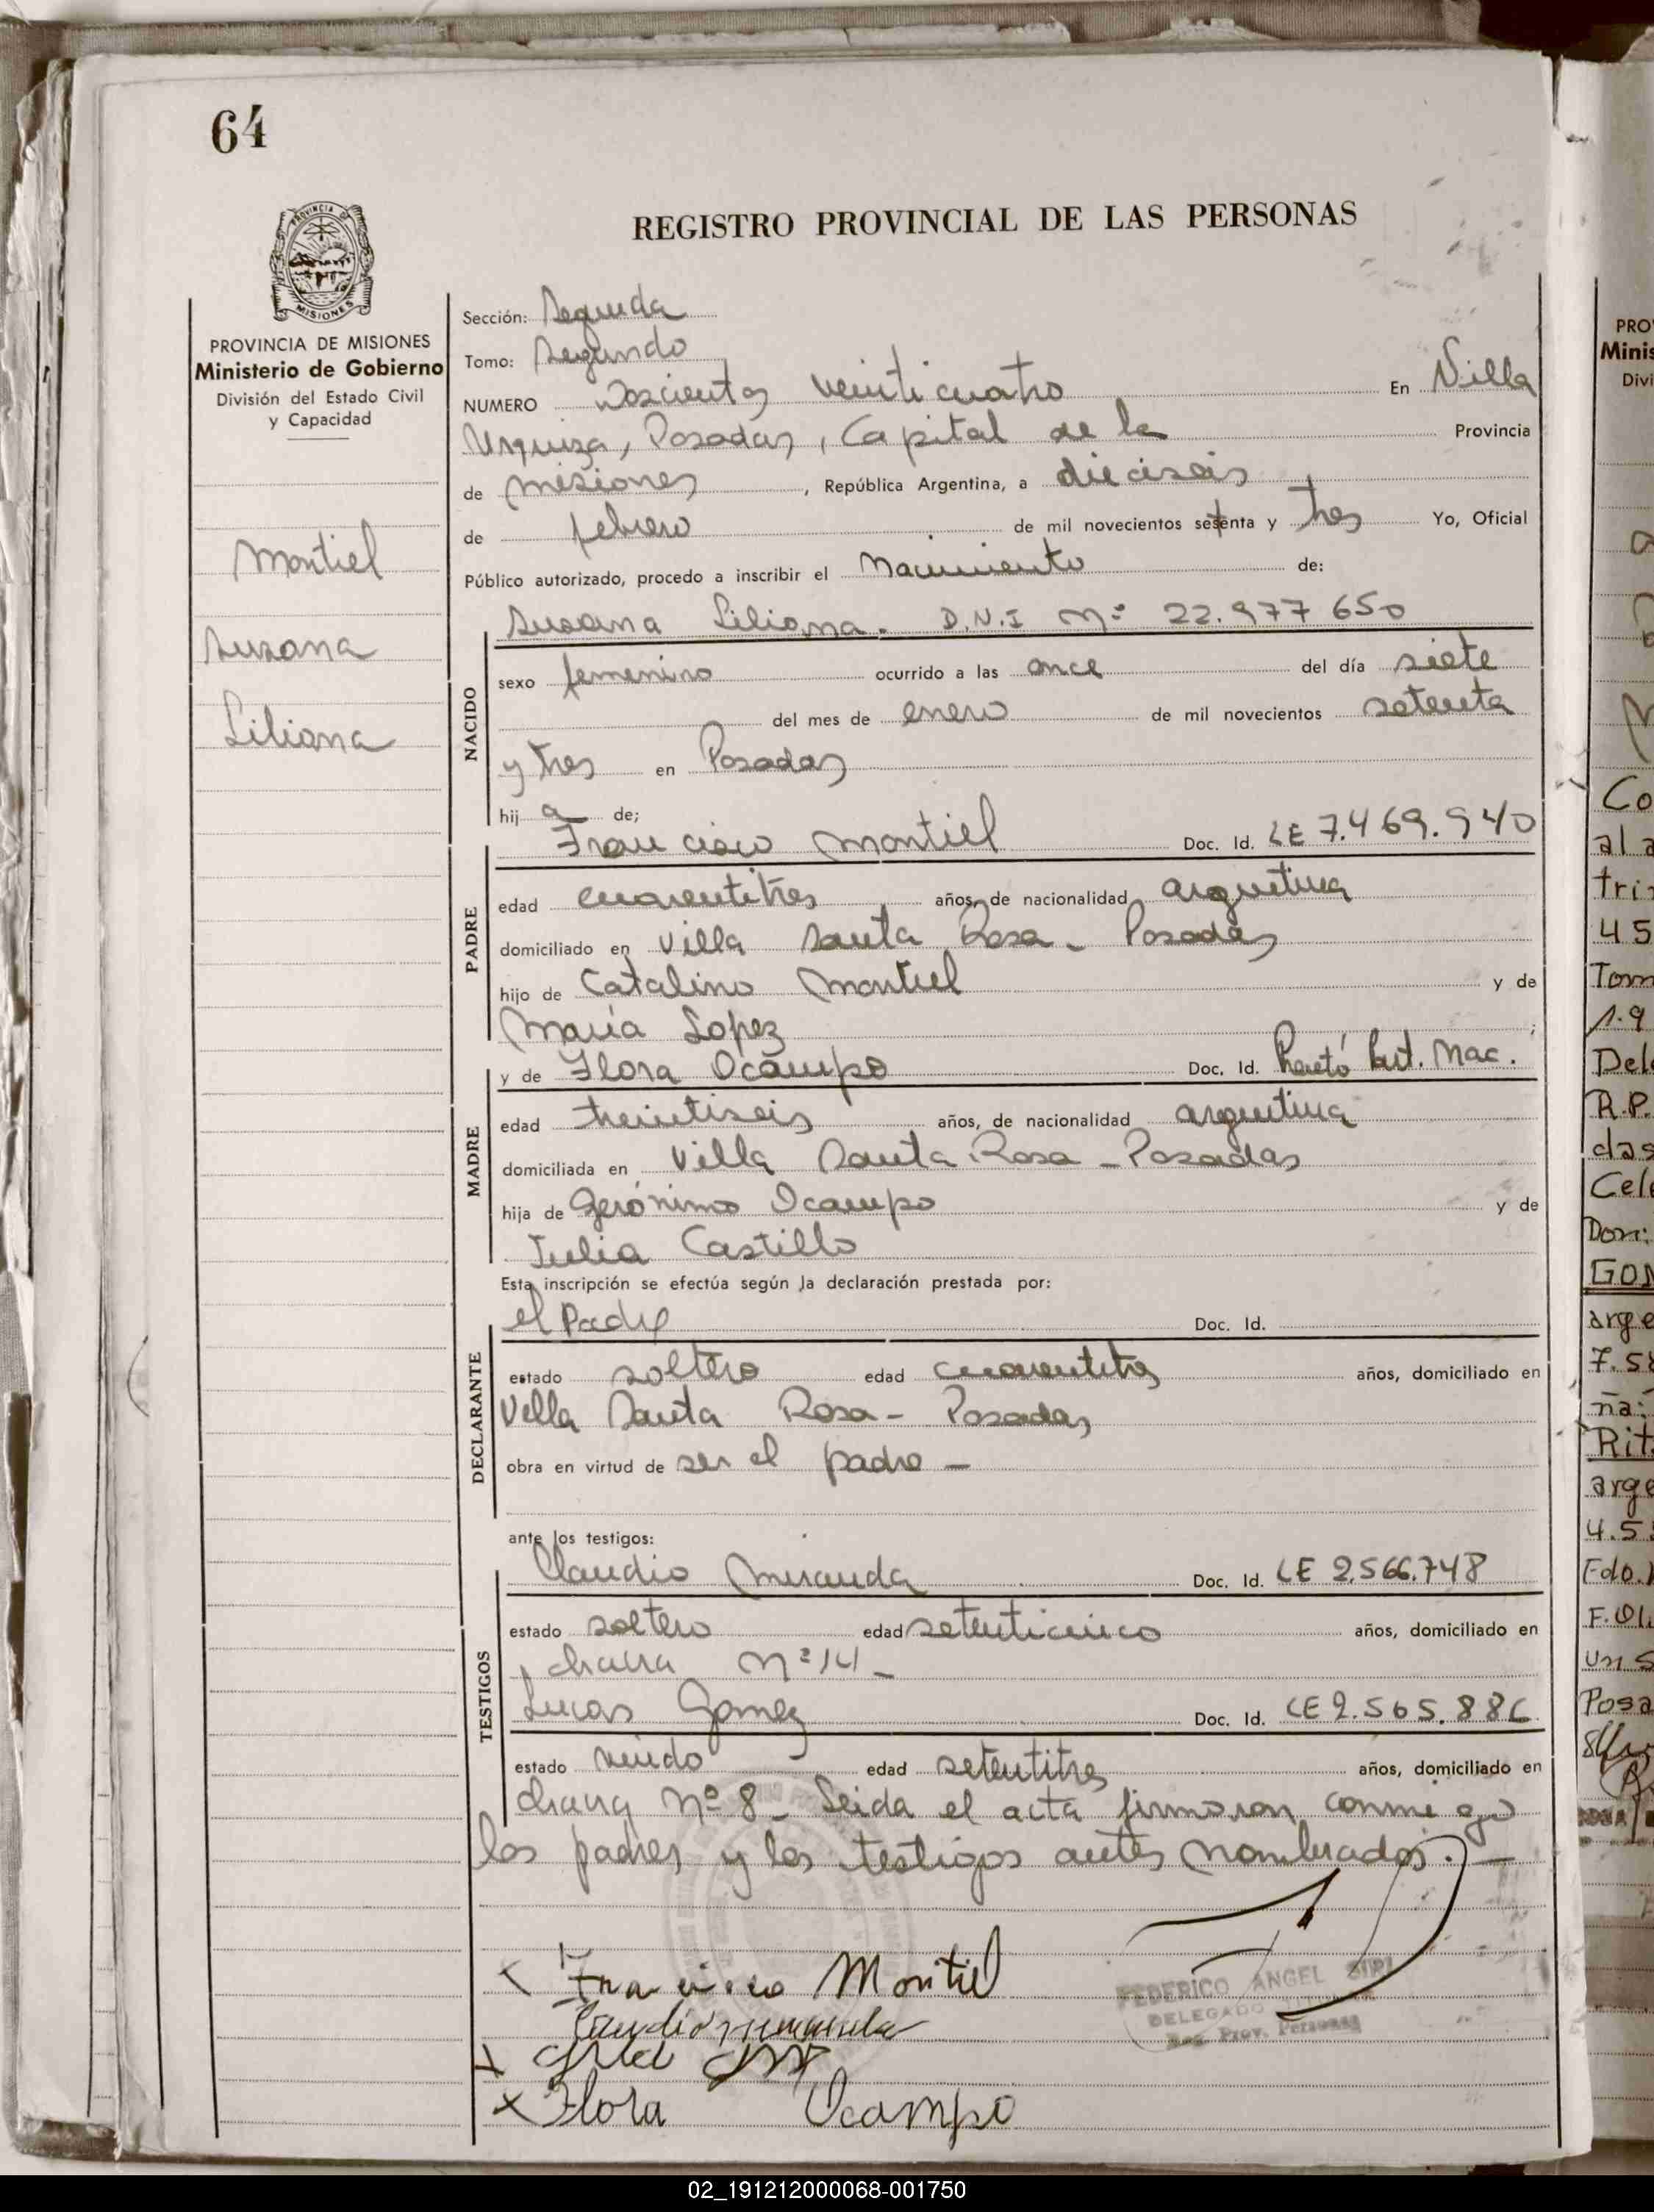 64
REGISTRO PROVINCIAL DE LAS PERSONAS
PROVINCIA DE MISIONES
Ministerio de Gobierno
División del Estado Civil
y Capacidad
Montiel
Susana
Liliana
Sección: Segunda
Tomo: Segundo
NUMERO Doscientos veinticuatro En Villa
Urquiza, Posadas, Capital de la Provincia
de Misiones, República Argentina, a dieciseis
de febrero de mil novecientos setenta y tres Yo, Oficial
Público autorizado, procedo a inscribir el Nacimiento de:
Susana Liliana. D.N.I Nº 22.977650
NACIDO
sexo femenino ocurrido a las once del día siete
del mes de enero de mil novecientos setenta
y tres en Posadas
hij a de;
Francisco Montiel Doc. Id. LE 7.469.940
PADRE
edad cuarentitres años, de nacionalidad argentina
domiciliado en Villa Santa Rosa - Posadas
hijo de Catalino Montiel y de
María Lopez ;
y de Flora Ocampo Doc. Id. Part. Nac.
MADRE
edad treintiseis años, de nacionalidad argentina
domiciliada en Villa Santa Rosa - Posadas
hija de Gerónimo Ocampo y de
Julia Castillo
Esta inscripción se efectúa según la declaración prestada por:
el Padre Doc. Id.
DECLARANTE
estado soltero edad cuarentitres años, domiciliado en
Villa Santa Rosa - Posadas
obra en virtud de ser el padre -
ante los testigos:
Claudio Miranda Doc. Id. LE 2.566.748
TESTIGOS
estado soltero edad setenticinco años, domiciliado en
chacra Nº 141 -
Lucas Gomez Doc. Id. LE 2.565.886
estado viudo edad setentitres años, domiciliado en
chacra Nº 8 - Leida el acta firmaron conmigo
los padres y los testigos antes nombrados. -
Francisco Montiel
FEDERICO ANGEL SIRI
DELEGADO TITULAR
Reg. Prov. Personas
Flora Ocampo
02_191212000068-001750